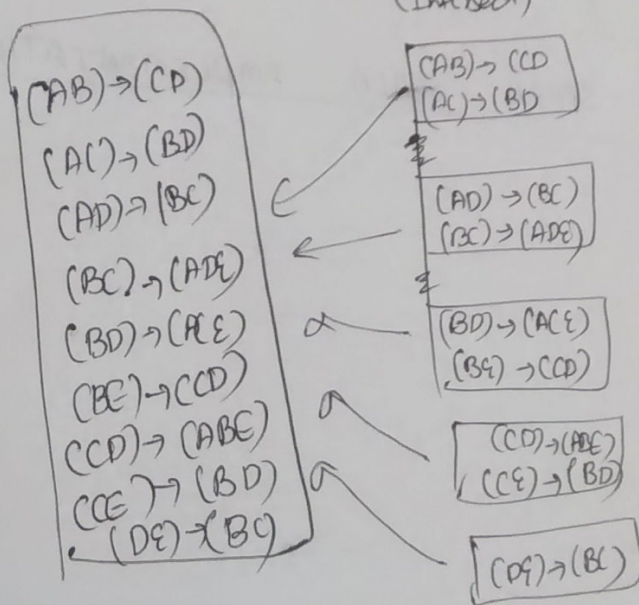 (AB)→(CD)
(AC)→(BD)
(AD)→(BC)
(BC)→(ADE)
(BD)→(ACE)
(BE)→(CD)
(CD)→(ABE)
(CE)→(BD)
(DE)→(BC)
(AB)→(CD
(AC)→(BD
(AD)→(BC)
(BC)→(ADE)
(BD)→(ACE)
(BE)→(CD)
(CD)→(ABE)
(CE)→(BD)
(DE)→(BC)